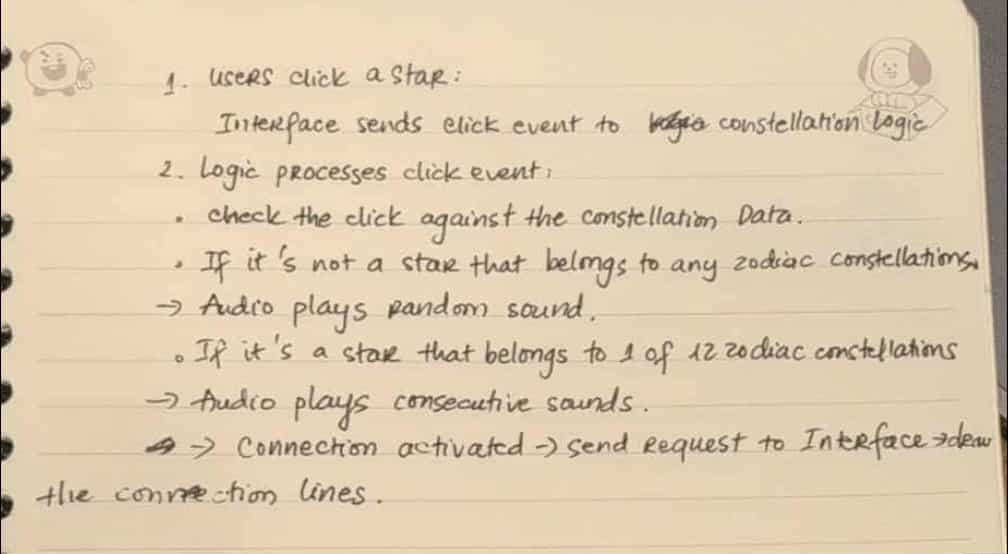 1. Users click a star:
Interface sends click event to constellation logic
2. Logic processes click event:
• check the click against the constellation Data.
• If it's not a star that belongs to any zodiac constellations.
→ Audio plays random sound.
• If it's a star that belongs to 1 of 12 zodiac constellations
→ Audio plays consecutive sounds.
→ Connection activated → send request to Interface → draw
the connection lines.